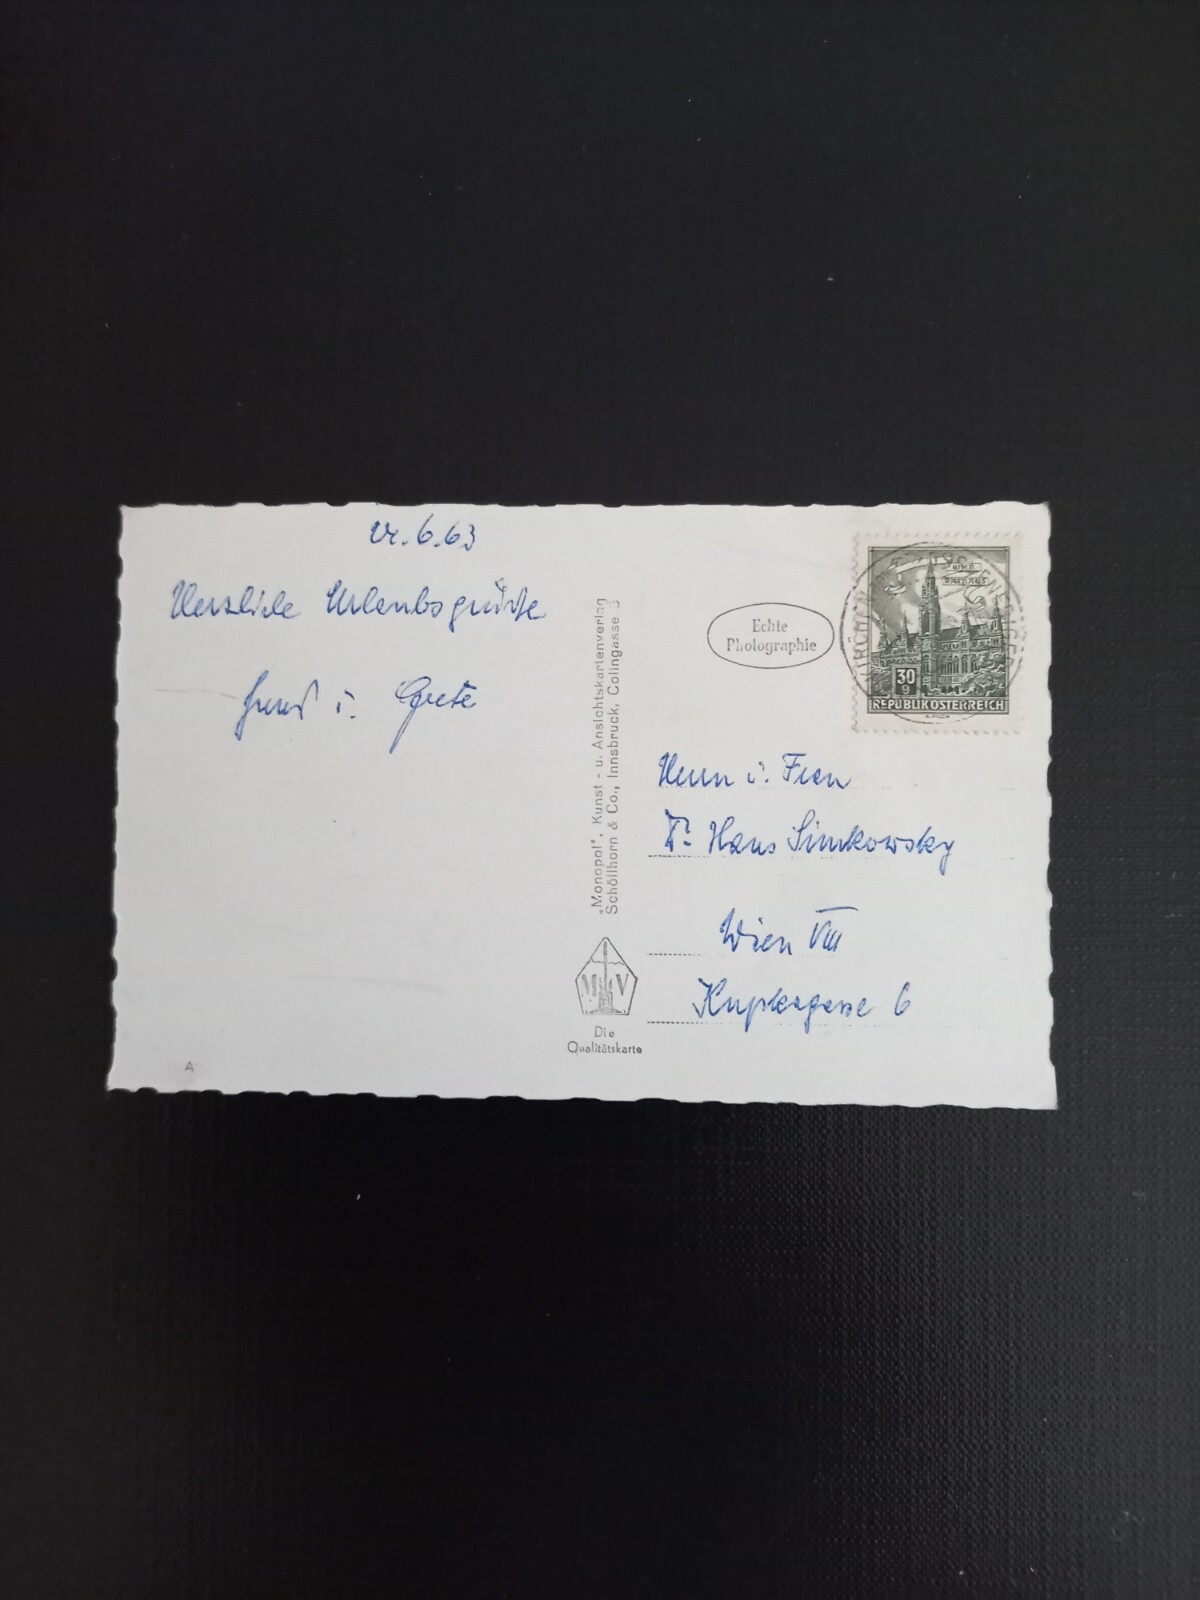 .6.63
Herzliche Urlaubsgrüße
u. Grete
"Monopol", Kunst - u. Ansichtskartenverlag
Schöllhorn & Co., Innsbruck, Colingasse
M V
Die
Qualitätskarte
A
Echte
Photographie
WIEN
RATHAUS
30
g
REPUBLIK ÖSTERREICH
Herrn u. Frau
Dr. Hans Simkowsky
Wien VIII
Kupkagasse 6